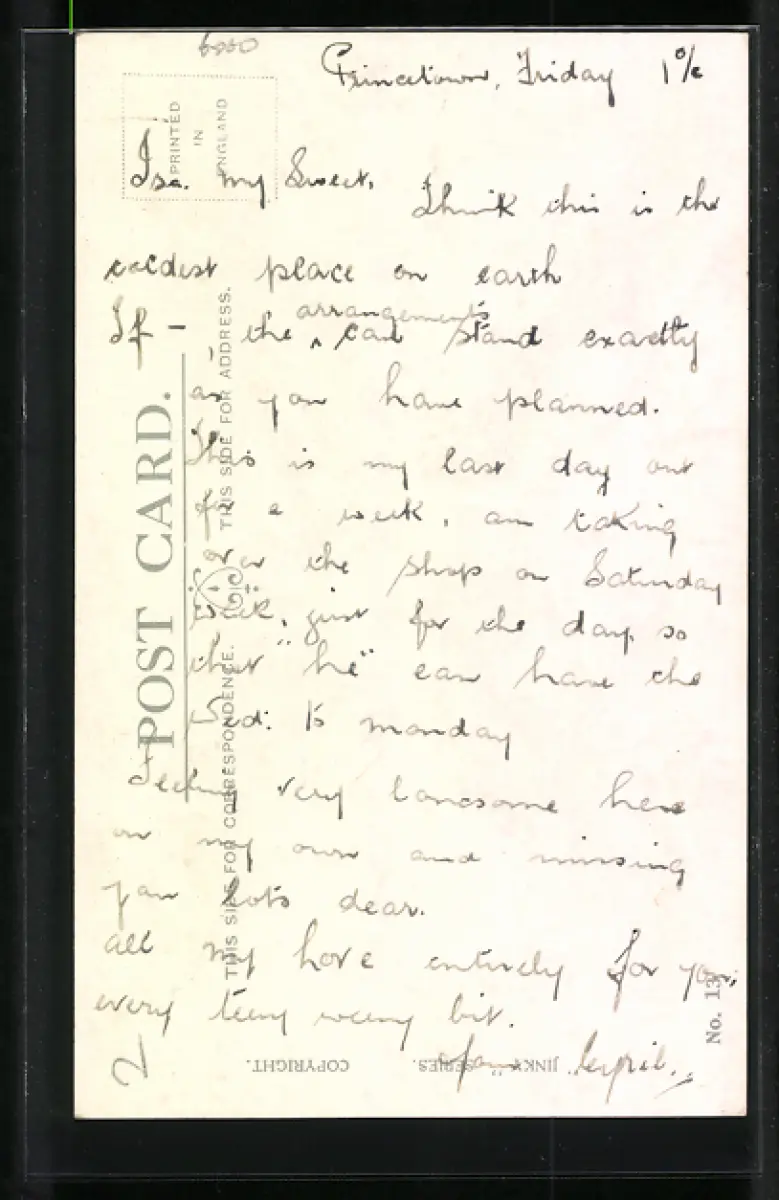 6550
Princetown, Friday 1 o/c
PRINTED
IN
ENGLAND
Isa. my Sweet.
Think this is the
coldest place on earth
If - the arrangements can stand exactly
as you have planned.
This is my last day out
for a week, am taking
over the shop on Saturday
week, just for the day, so
that "he" can have the
Wed: to monday
Feeling very lonesome here
on my own and missing
you lots dear.
all my love entirely for you,
every teeny weeny bit.
Yours Cyril.
2
POST CARD.
THIS SIDE FOR CORRESPONDENCE.
THIS SIDE FOR ADDRESS.
"JINKY" SERIES.
COPYRIGHT.